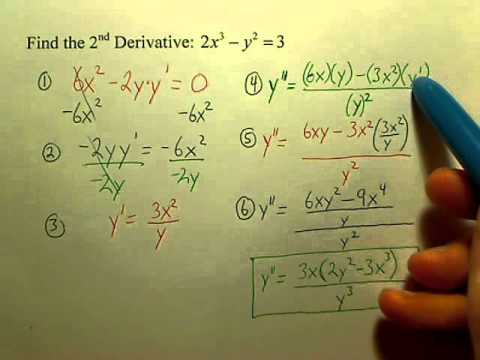 Find the 2nd Derivative: 2x³ − y² = 3
① 6x² − 2y·y' = 0
−6x² −6x²
② −2yy' / −2y = −6x² / −2y
③ y' = 3x² / y
④ y'' = (6x)(y) − (3x²)(y') / (y)²
⑤ y'' = 6xy − 3x²(3x²/y) / y²
⑥ y'' = 6xy² − 9x⁴ / y / y²
y'' = 3x(2y² − 3x³) / y³